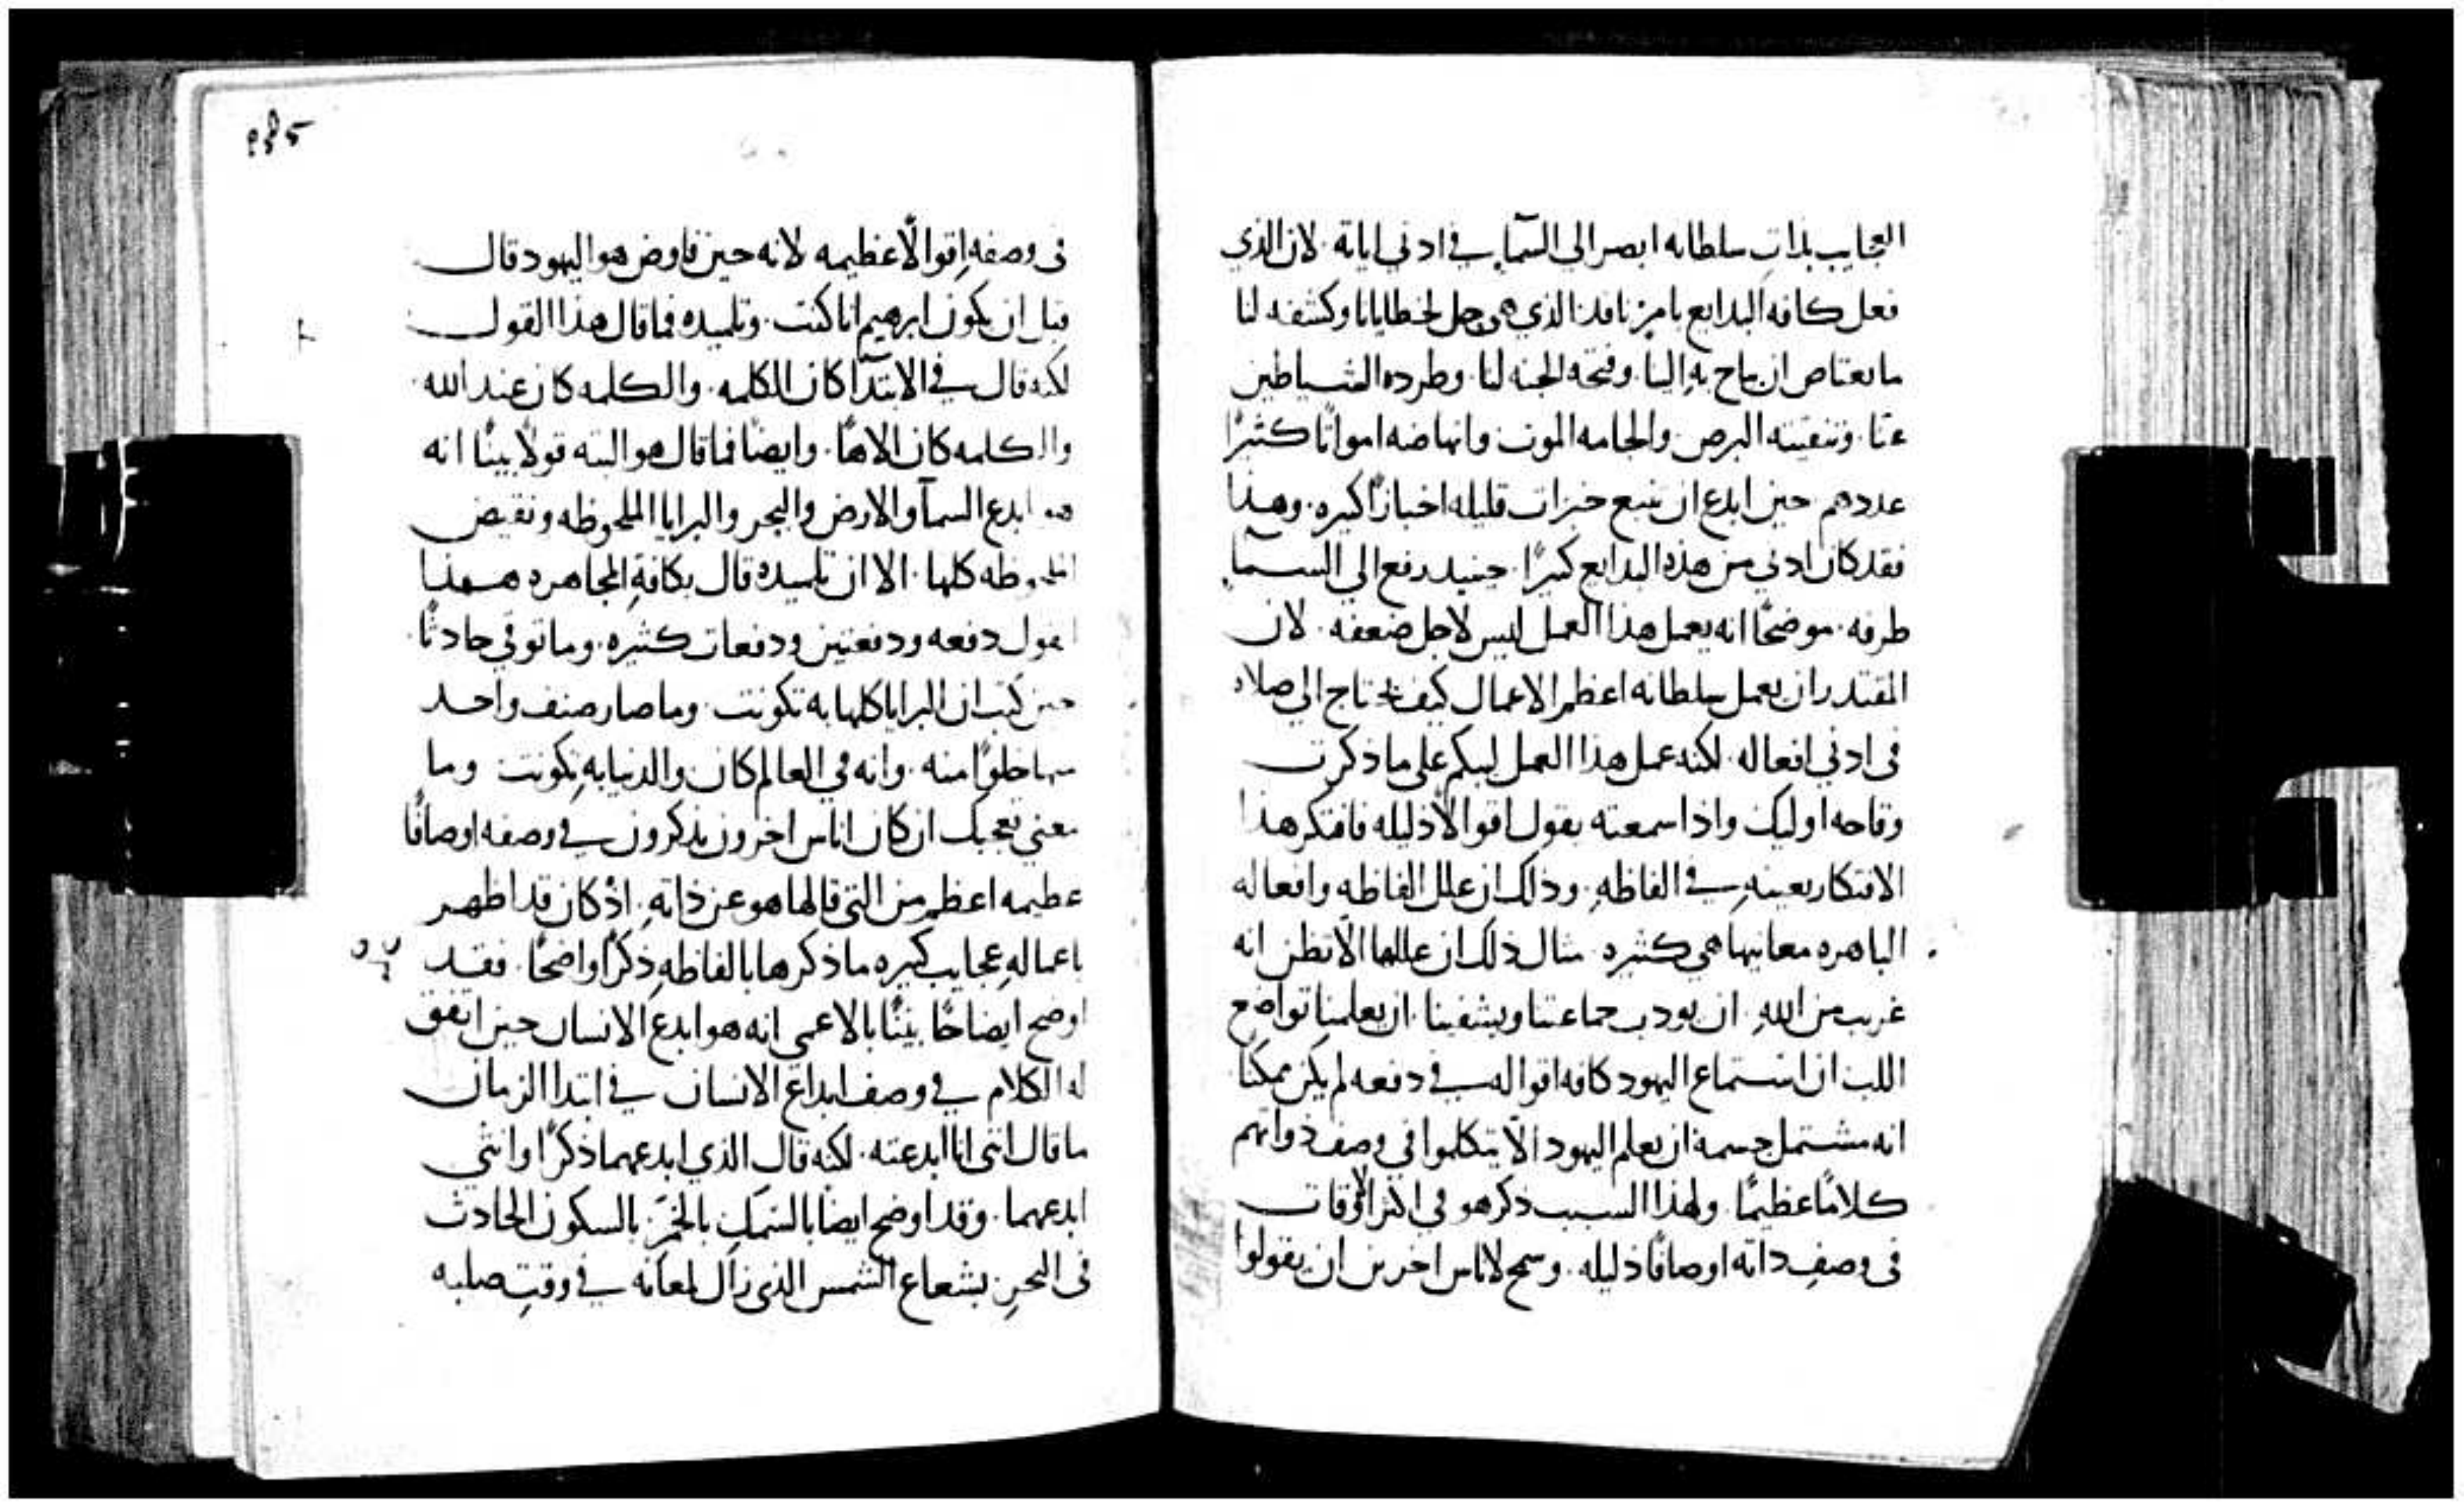 العجايب بذات سلطانه ابصر الي السمآ في ادني اياته . لان الذي
فعل كافه البدايع بامر نافذ الذي هي حل لخطايانا وكشفه لنا
ما يعتاص ان يباح به الينا . وفتحه الجنه لنا . وطرده الشياطين
عنا . وتنقيته البرص . والجامه الموت وانهاضه امواتًا كثيرًا
عددهم حين ابدع ان ينبع خبزات قليله اخبازًا كثيره . وهذا
فقد كان ادني من هذه البدايع كثيرًا . حينيد رفع الي السمآ
طرفه . موضحًا انه يعمل هذا العمل ليس لاجل ضعفه . لان
المقتدر ان يعمل بسلطانه اعظم الاعمال كيف يحتاج الي صلاه
في ادني افعاله . لكنه عمل هذا العمل ليبكم علي ما ذكرت
وقاحه اوليك واذا سمعته يقول اقوالًا ذليله فافتكر هذا
الافتكار بعينه في الفاظه . وذلك ان علل الفاظه وافعاله
الباهره معانيها هي كثيره . مثال ذلك ان عللها الّا تظن انه
غريب من الله . ان يودب جماعتنا ويشفينا . ان يعلمنا تواضع
اللب ان استماع اليهود كافه اقواله في دفعه لم يكن ممكنًا
انه مشتمل جسمه ان يعلم اليهود الّا يتكلموا في وصف ذواتهم
كلامًا عظيمًا . ولهذا السبب ذكر هو في اكثر الاوقات
في وصف داته اوصافًا ذليله . وسمح لاناس اخرين ان يقولوا
985
في وصفه اقوالًا عظيمه لانه حين فاوض هو اليهود قال
قبل ان يكون ابرهيم انا كنت . وتلميده فما قال هذا القول
لكنه قال في الابتدآ كان الكلمه . والكلمه كان عند الله .
والكلمه كان الاهًا . وايضًا فما قال هو البته قولًا بينًا انه
هو ابدع السمآ والارض والبحر والبرايا الملحوظه ونقيض
الملحوظه كلها . الا ان تلميده قال بكافة المجاهره هذا
القول دفعه ودفعتين ودفعات كثيره . وما توقي حادثًا .
حين كتب ان البرايا كلها به تكونت وما صار صنف واحد
منها خلوًا منه . وانه في العالم كان والدنيا به تكونت وما
معني تعجبك ان كان اناس اخرون يذكرون في وصفه اوصافًا
عظيمه اعظم من التي قالها هو عن ذاته . اذ كان قد اظهر
باعماله عجايب كثيره ما ذكرها بالفاظه ذكرًا واضحًا . فقد
اوضح ايضاحًا بينًا بالاعمي انه هو ابدع الانسان حين اتفق
له الكلام في وصف ابداع الانسان في ابتدا الزمان
ما قال انني انا ابدعته . لكنه قال الذي ابدعهما ذكرًا وانثي
ابدعهما . وقد اوضح ايضًا بالسمك بالخمر بالسكون الحادث
في البحر بشعاع الشمس الذي زال لمعانه في وقت صلبه